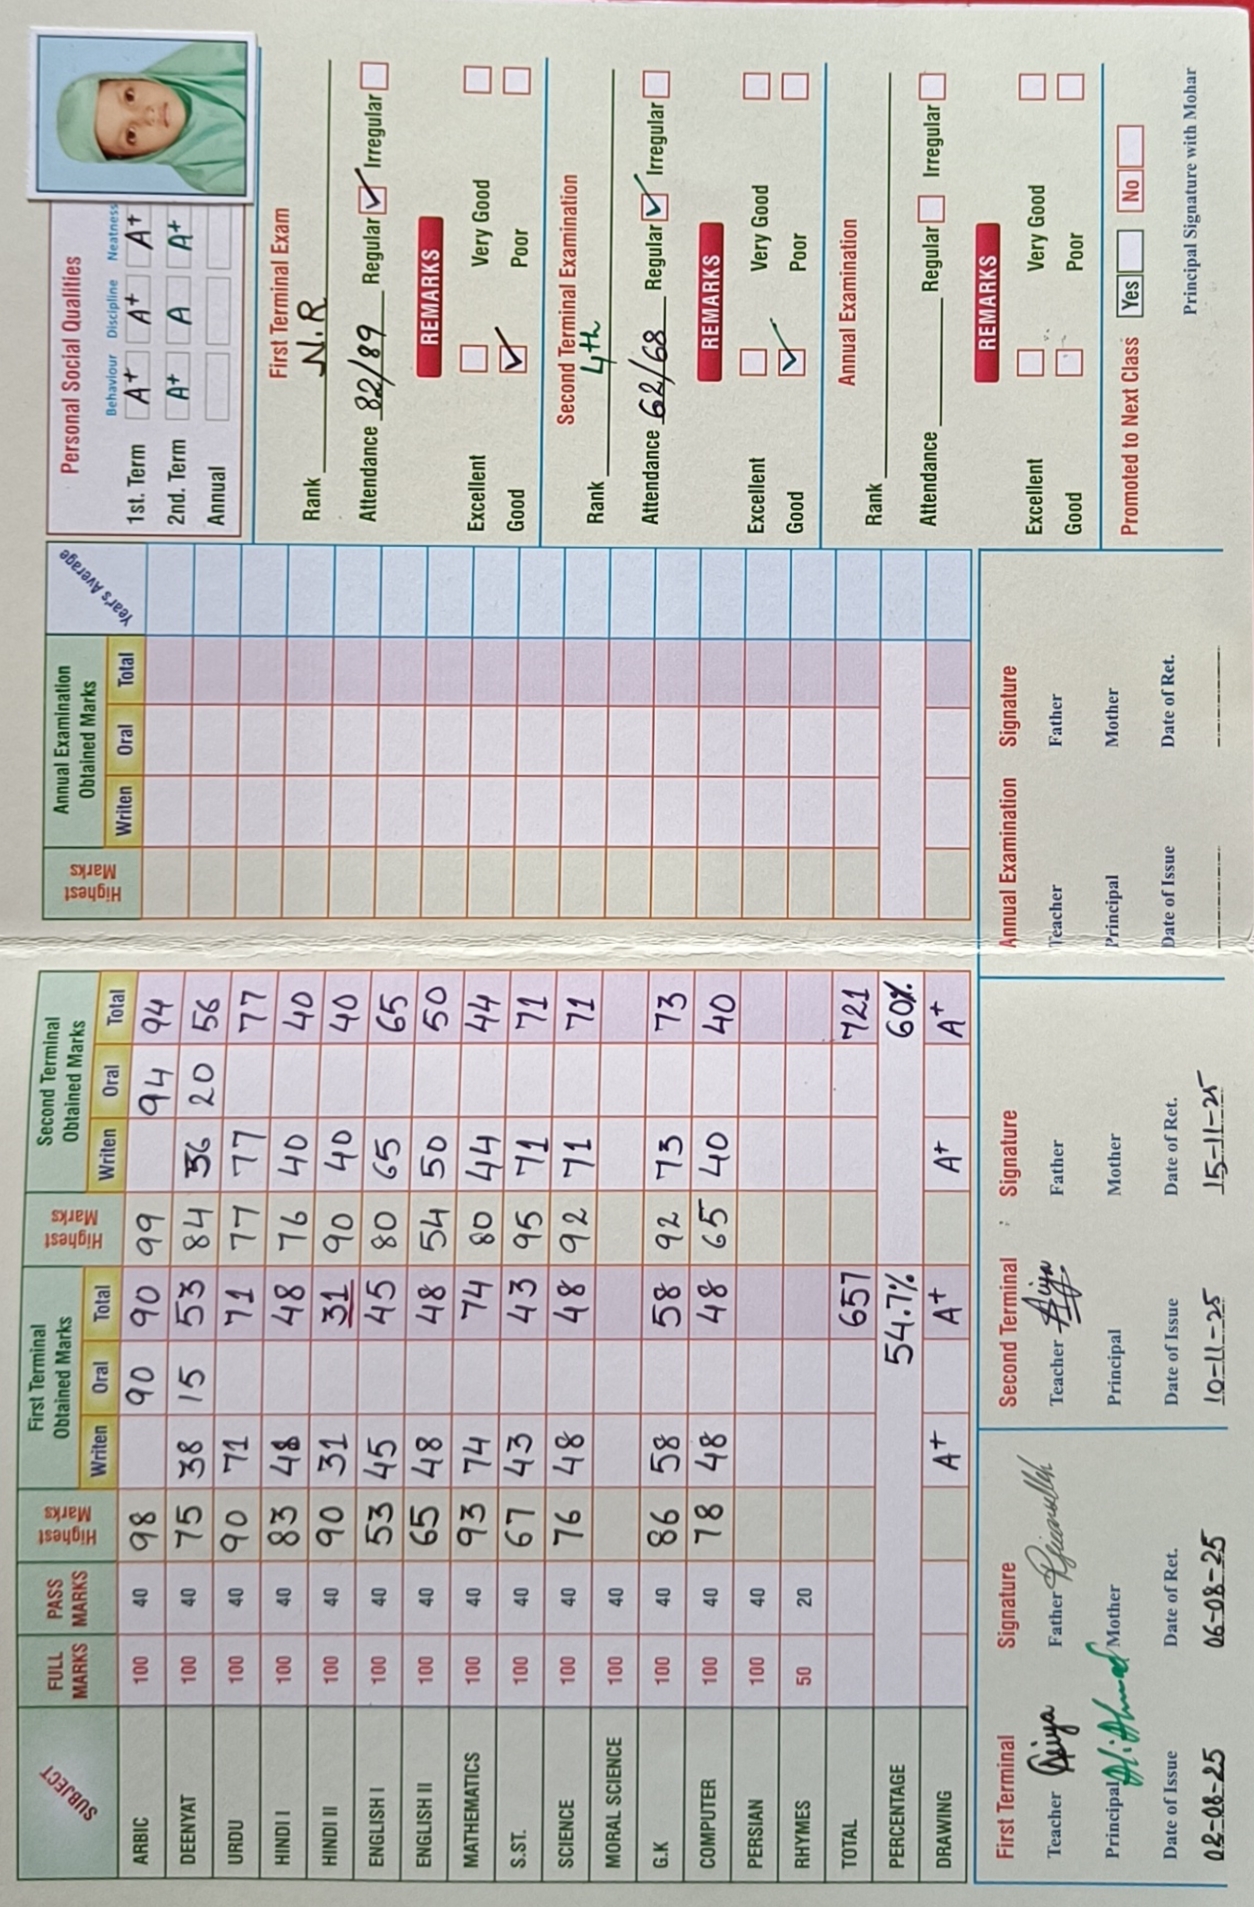 SUBJECT FULL MARKS PASS MARKS Highest Marks First Terminal Obtained Marks Writen Oral Total Highest Marks Second Terminal Obtained Marks Writen Oral Total Highest Marks Annual Examination Obtained Marks Writen Oral Total Year's Average
ARBIC 100 40 98 90 90 99 94 94
DEENYAT 100 40 75 38 15 53 84 36 20 56
URDU 100 40 90 71 71 77 77 77
HINDI I 100 40 83 48 48 76 40 40
HINDI II 100 40 90 31 31 90 40 40
ENGLISH I 100 40 53 45 45 80 65 65
ENGLISH II 100 40 65 48 48 54 50 50
MATHEMATICS 100 40 93 74 74 80 44 44
S.ST. 100 40 67 43 43 95 71 71
SCIENCE 100 40 76 48 48 92 71 71
MORAL SCIENCE 100 40
G.K 100 40 86 58 58 92 73 73
COMPUTER 100 40 78 48 48 65 40 40
PERSIAN 100 40
RHYMES 50 20
TOTAL 657 721
PERCENTAGE 54.7% 60%
DRAWING A+ A+ A+ A+
First Terminal Signature
Teacher Father
Principal Ali Ahmad Mother
Date of Issue Date of Ret.
02-08-25 06-08-25
Second Terminal : Signature
Teacher Father
Principal Mother
Date of Issue Date of Ret.
10-11-25 15-11-25
Annual Examination Signature
Teacher Father
Principal Mother
Date of Issue Date of Ret.
Personal Social Qualities
Behaviour Discipline Neatness
1st. Term A+ A+ A+
2nd. Term A+ A A+
Annual
First Terminal Exam
Rank N.R
Attendance 82/89 Regular ✓ Irregular
REMARKS
Excellent Very Good
Good ✓ Poor
Second Terminal Examination
Rank 4th
Attendance 62/68 Regular ✓ Irregular
REMARKS
Excellent Very Good
Good ✓ Poor
Annual Examination
Rank
Attendance Regular Irregular
REMARKS
Excellent Very Good
Good Poor
Promoted to Next Class Yes No
Principal Signature with Mohar